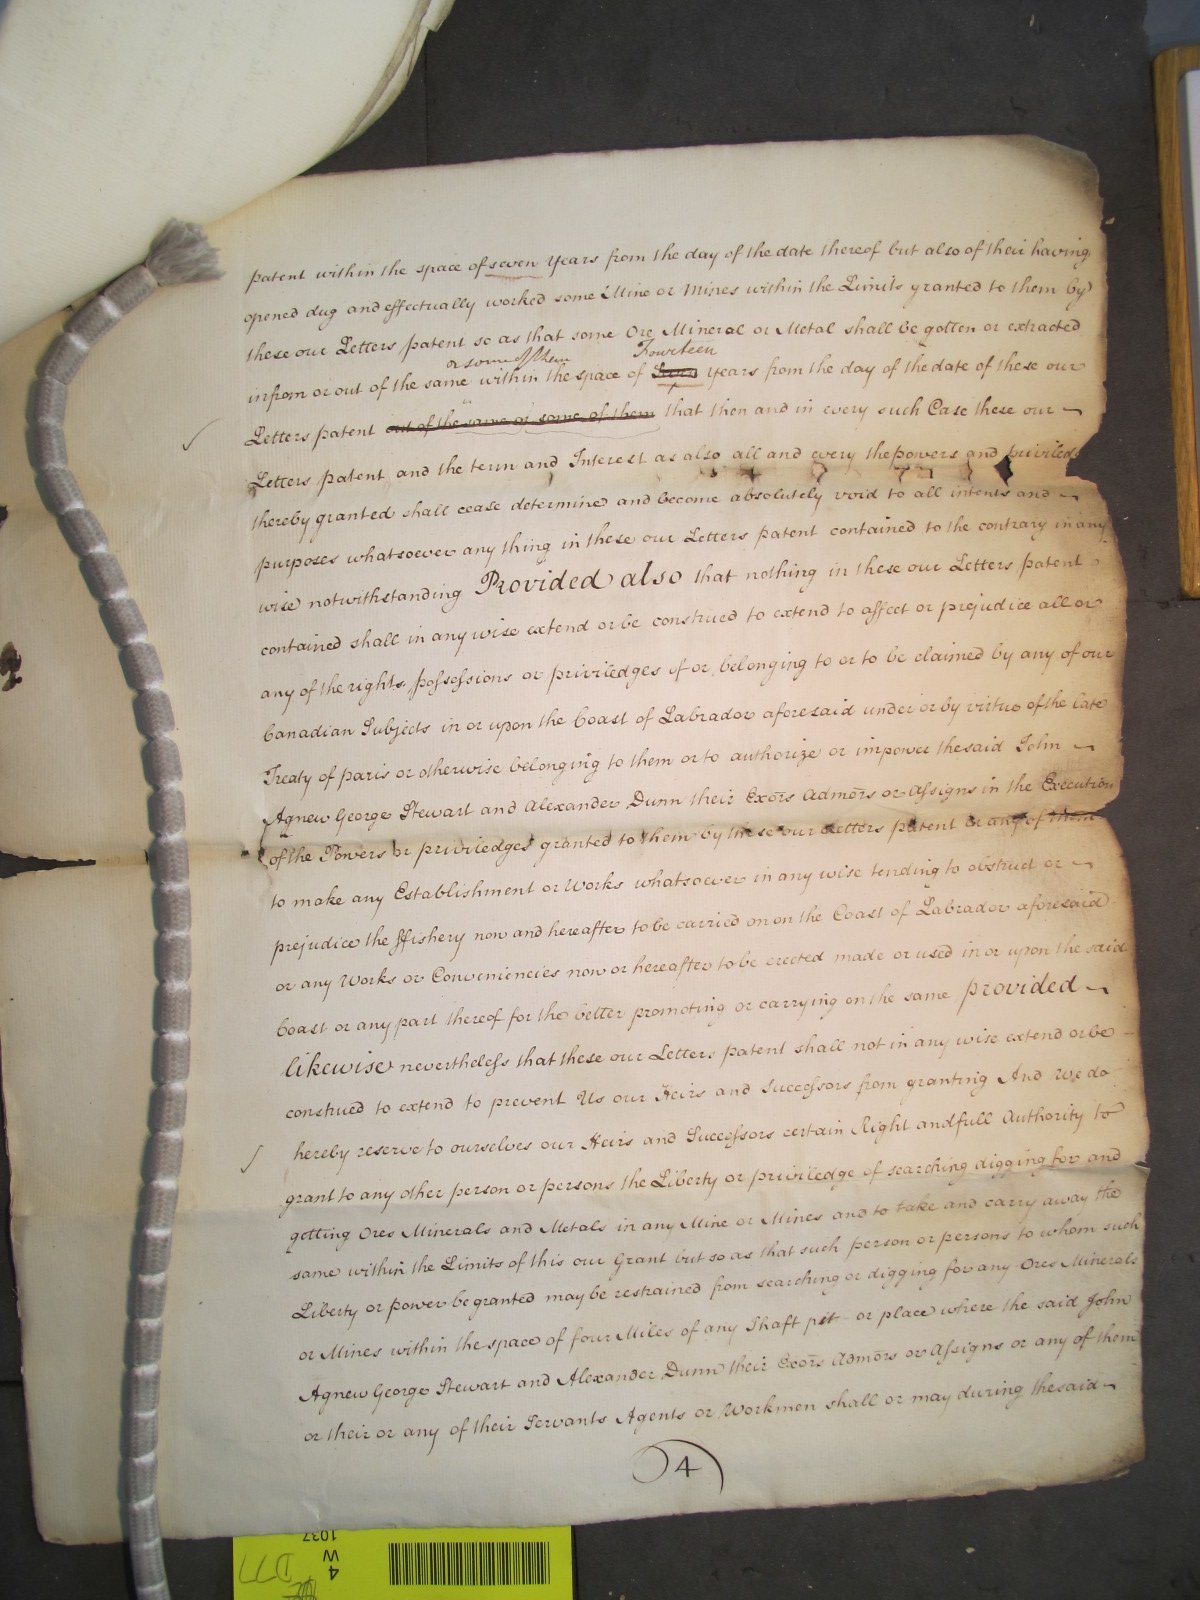 patent within the space of seven years from the day of the date thereof but also of their having
opened dug and effectually worked some Mine or Mines within the Limits granted to them by
these our Letters patent so as that some Ore Mineral or Metal shall be gotten or extracted
or some of them Fourteen
in from or out of the same within the space of years from the day of the date of these our
Letters patent out of the same or some of them that then and in every such Case these our
Letters patent and the term and Interest as also all and every the powers and priviledg
thereby granted shall cease determine and become absolutely void to all intents and
purposes whatsoever any thing in these our Letters patent contained to the contrary in any
wise notwithstanding Provided also that nothing in these our Letters patent
contained shall in any wise extend or be construed to extend to affect or prejudice all or
any of the rights possessions or priviledges of or belonging to or to be claimed by any of our
Canadian Subjects in or upon the Coast of Labrador aforesaid under or by virtue of the late
Treaty of paris or otherwise belonging to them or to authorize or impower the said John
Agnew George Stewart and Alexander Dunn their Exors Admors or Assigns in the Execution
of the Powers or priviledges granted to them by these our Letters patent or any of them
to make any Establishment or Works whatsoever in any wise tending to obstruct or
prejudice the ffishery now and hereafter to be carried on on the Coast of Labrador aforesaid
or any Works or Conveniencies now or hereafter to be erected made or used in or upon the said
Coast or any part thereof for the better promoting or carrying on the same provided
likewise nevertheless that these our Letters patent shall not in any wise extend or be
construed to extend to prevent Us our Heirs and Successors from granting And We do
hereby reserve to ourselves our Heirs and Successors certain Right and full Authority to
grant to any other person or persons the Liberty or priviledge of searching digging for and
getting Ores Minerals and Metals in any Mine or Mines and to take and carry away the
same within the Limits of this our Grant but so as that such person or persons to whom such
Liberty or power be granted may be restrained from searching or digging for any Ores Minerals
or Mines within the space of four Miles of any Shaft pit or place where the said John
Agnew George Stewart and Alexander Dunn their Exors Admors or Assigns or any of them
or their or any of their Servants Agents or Workmen shall or may during the said
4
4
W
1037
D77